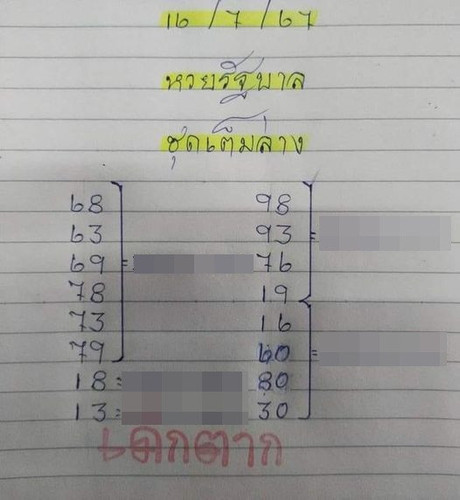 16 / 7 / 67
หวยรัฐบาล
ชุดเต็มล่าง
68
63
69 =
78
73
79
18 =
13 =
98
93 =
76
19
16
60 =
80
30
เดกตาก